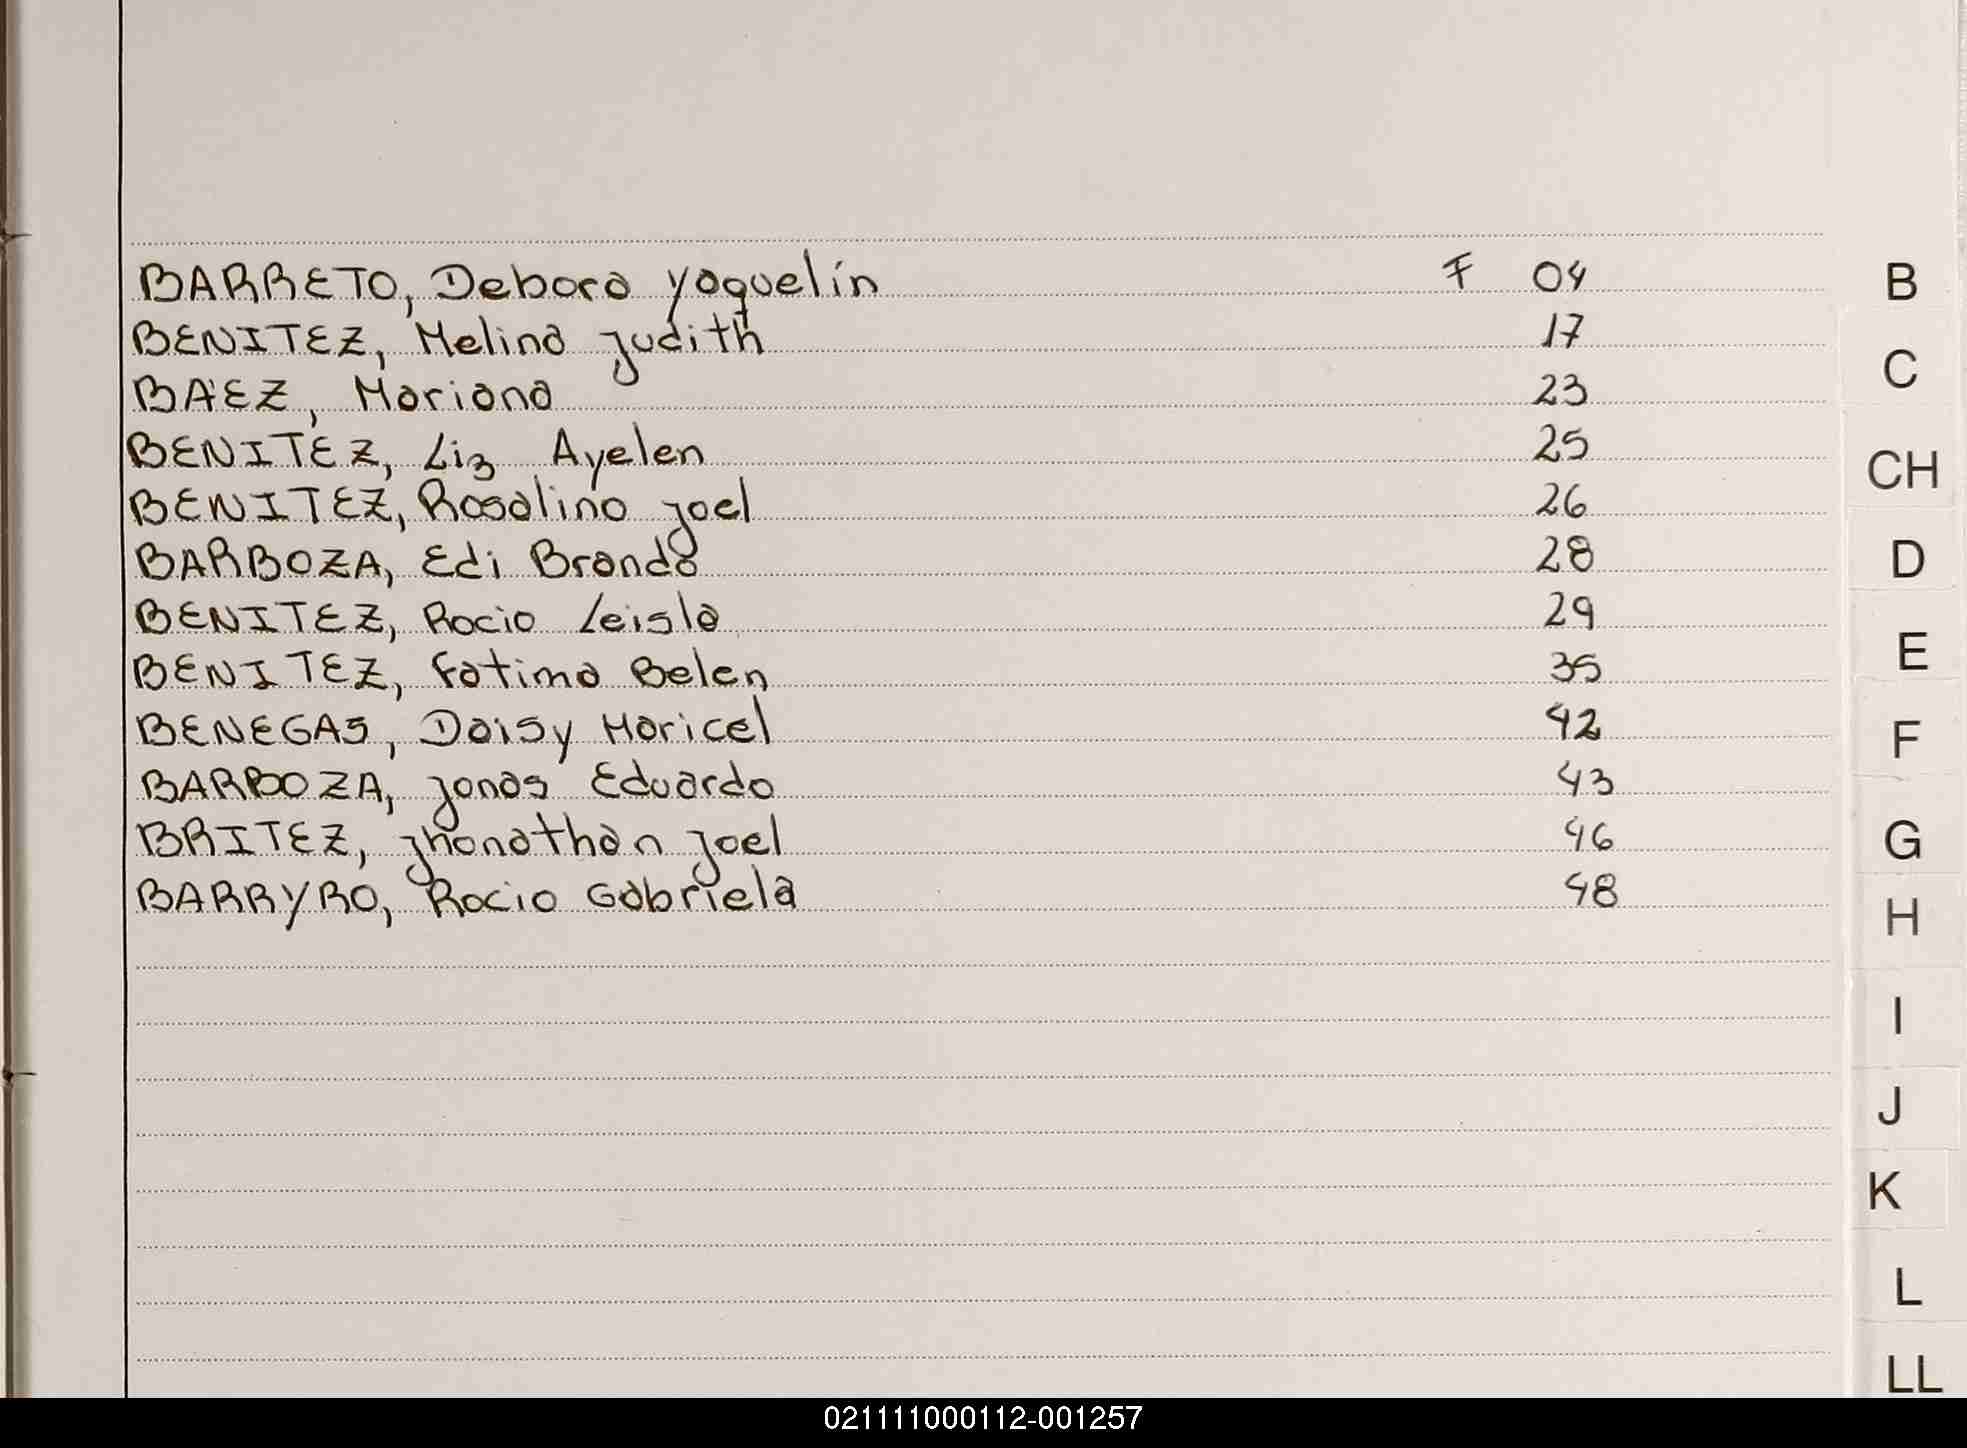 BARRETO, Debora Yaquelín F 04
BENITEZ, Melina Judith 17
BAÉZ, Mariana 23
BENITEZ, Liz Ayelen 25
BENITEZ, Rosalino Joel 26
BARBOZA, Edi Brando 28
BENITEZ, Rocio Leisla 29
BENITEZ, Fatima Belen 35
BENEGAS, Daisy Maricel 42
BARBOZA, Jonas Eduardo 43
BRITEZ, Jhonathan Joel 46
BARRYRO, Rocio Gabriela 48
B
C
CH
D
E
F
G
H
I
J
K
L
LL
021111000112-001257